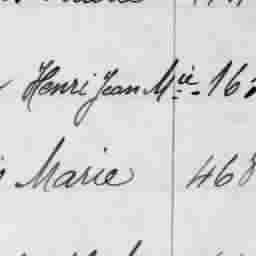 Henri Jean Mie. 16
Marie 468